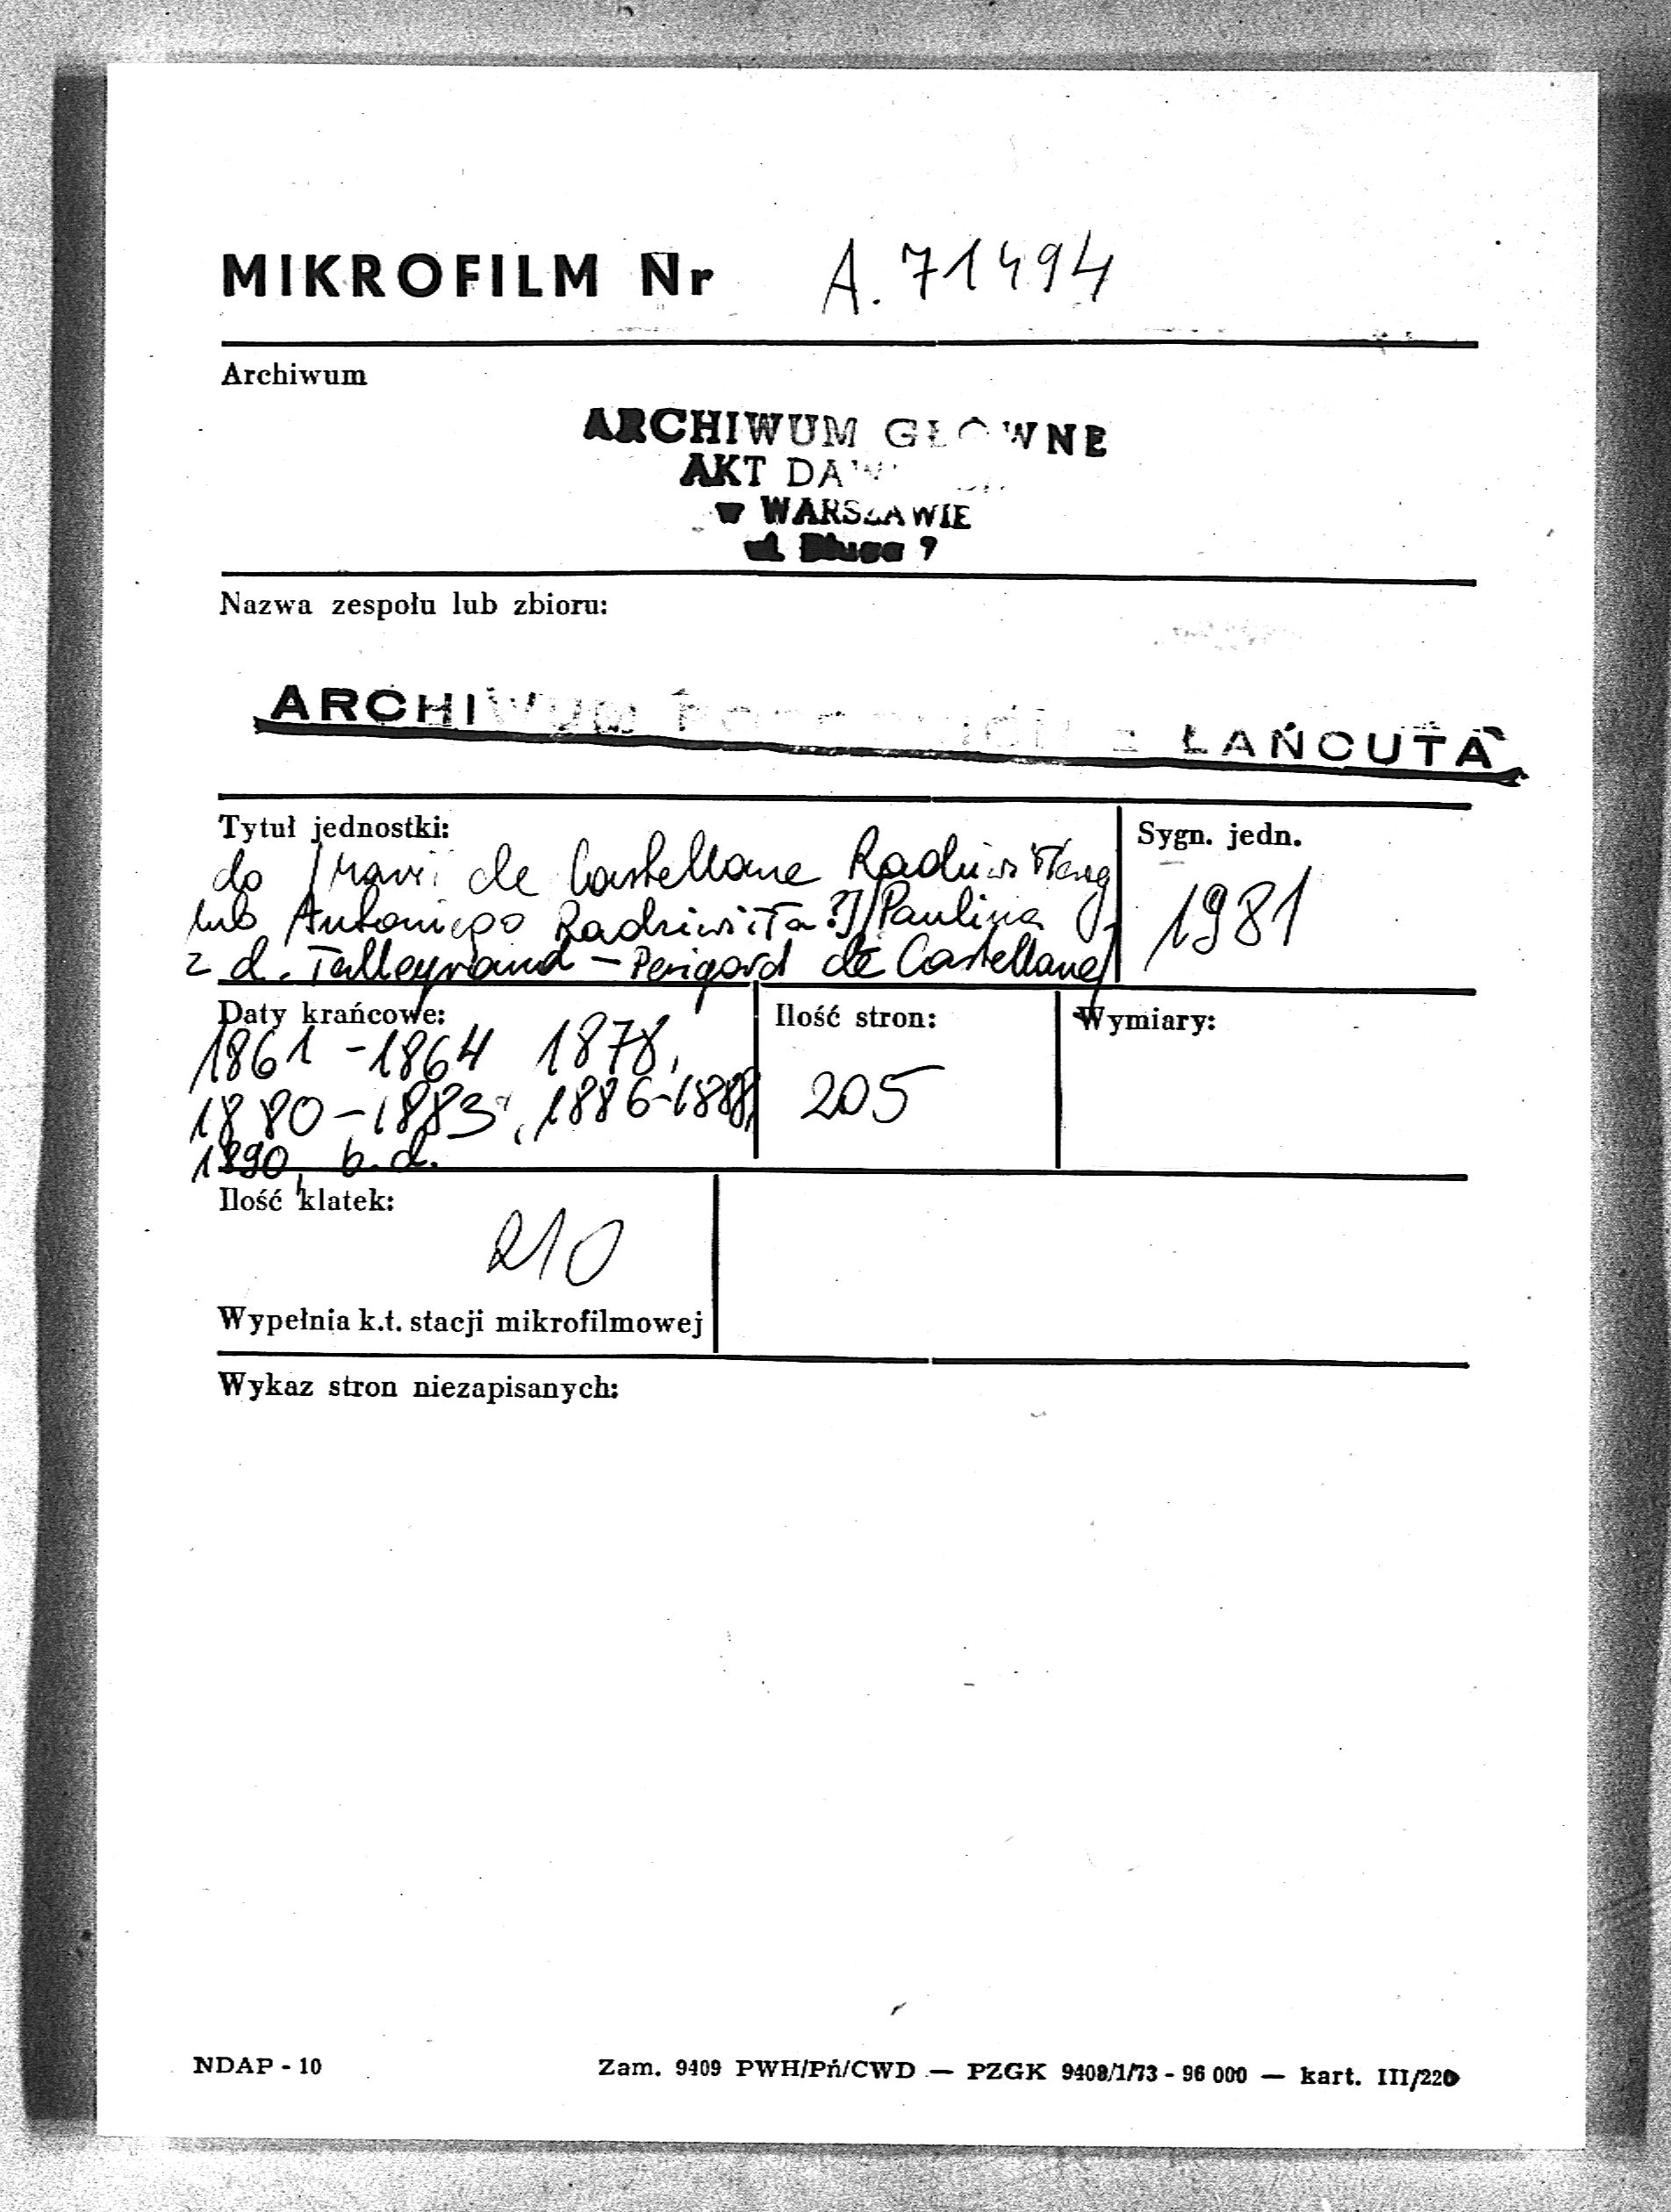 MIKROFILM Nr A. 71494
Archiwum
ARCHIWUM GŁÓWNE
AKT DAW
w WARSZAWIE
ul. Długa 7
Nazwa zespołu lub zbioru:
ARCHIWUM Z ŁAŃCUTA
Tytuł jednostki:
do /Marii de Castellane Radziwiłłowej
lub Antoniego Radziwiłła?]/Paulina
z d. Talleyrand - Perigord de Castellane/
Sygn. jedn.
1981
Daty krańcowe:
1861 - 1864 1878,
1880 - 1883, 1886-1888,
1890, b.d.
Ilość stron:
205
Wymiary:
Ilość klatek:
210
Wypełnia k.t. stacji mikrofilmowej
Wykaz stron niezapisanych:
NDAP - 10
Zam. 9409 PWH/Pń/CWD — PZGK 9408/1/73 - 96 000 — kart. III/220